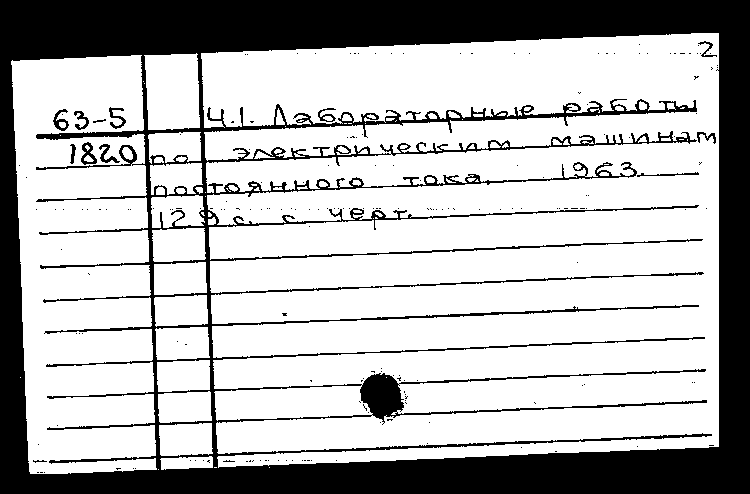 2
63-5 Ч.1. Лабораторные работы
1820 по электрическим машинам
постоянного тока. 1963.
129 с. с черт.